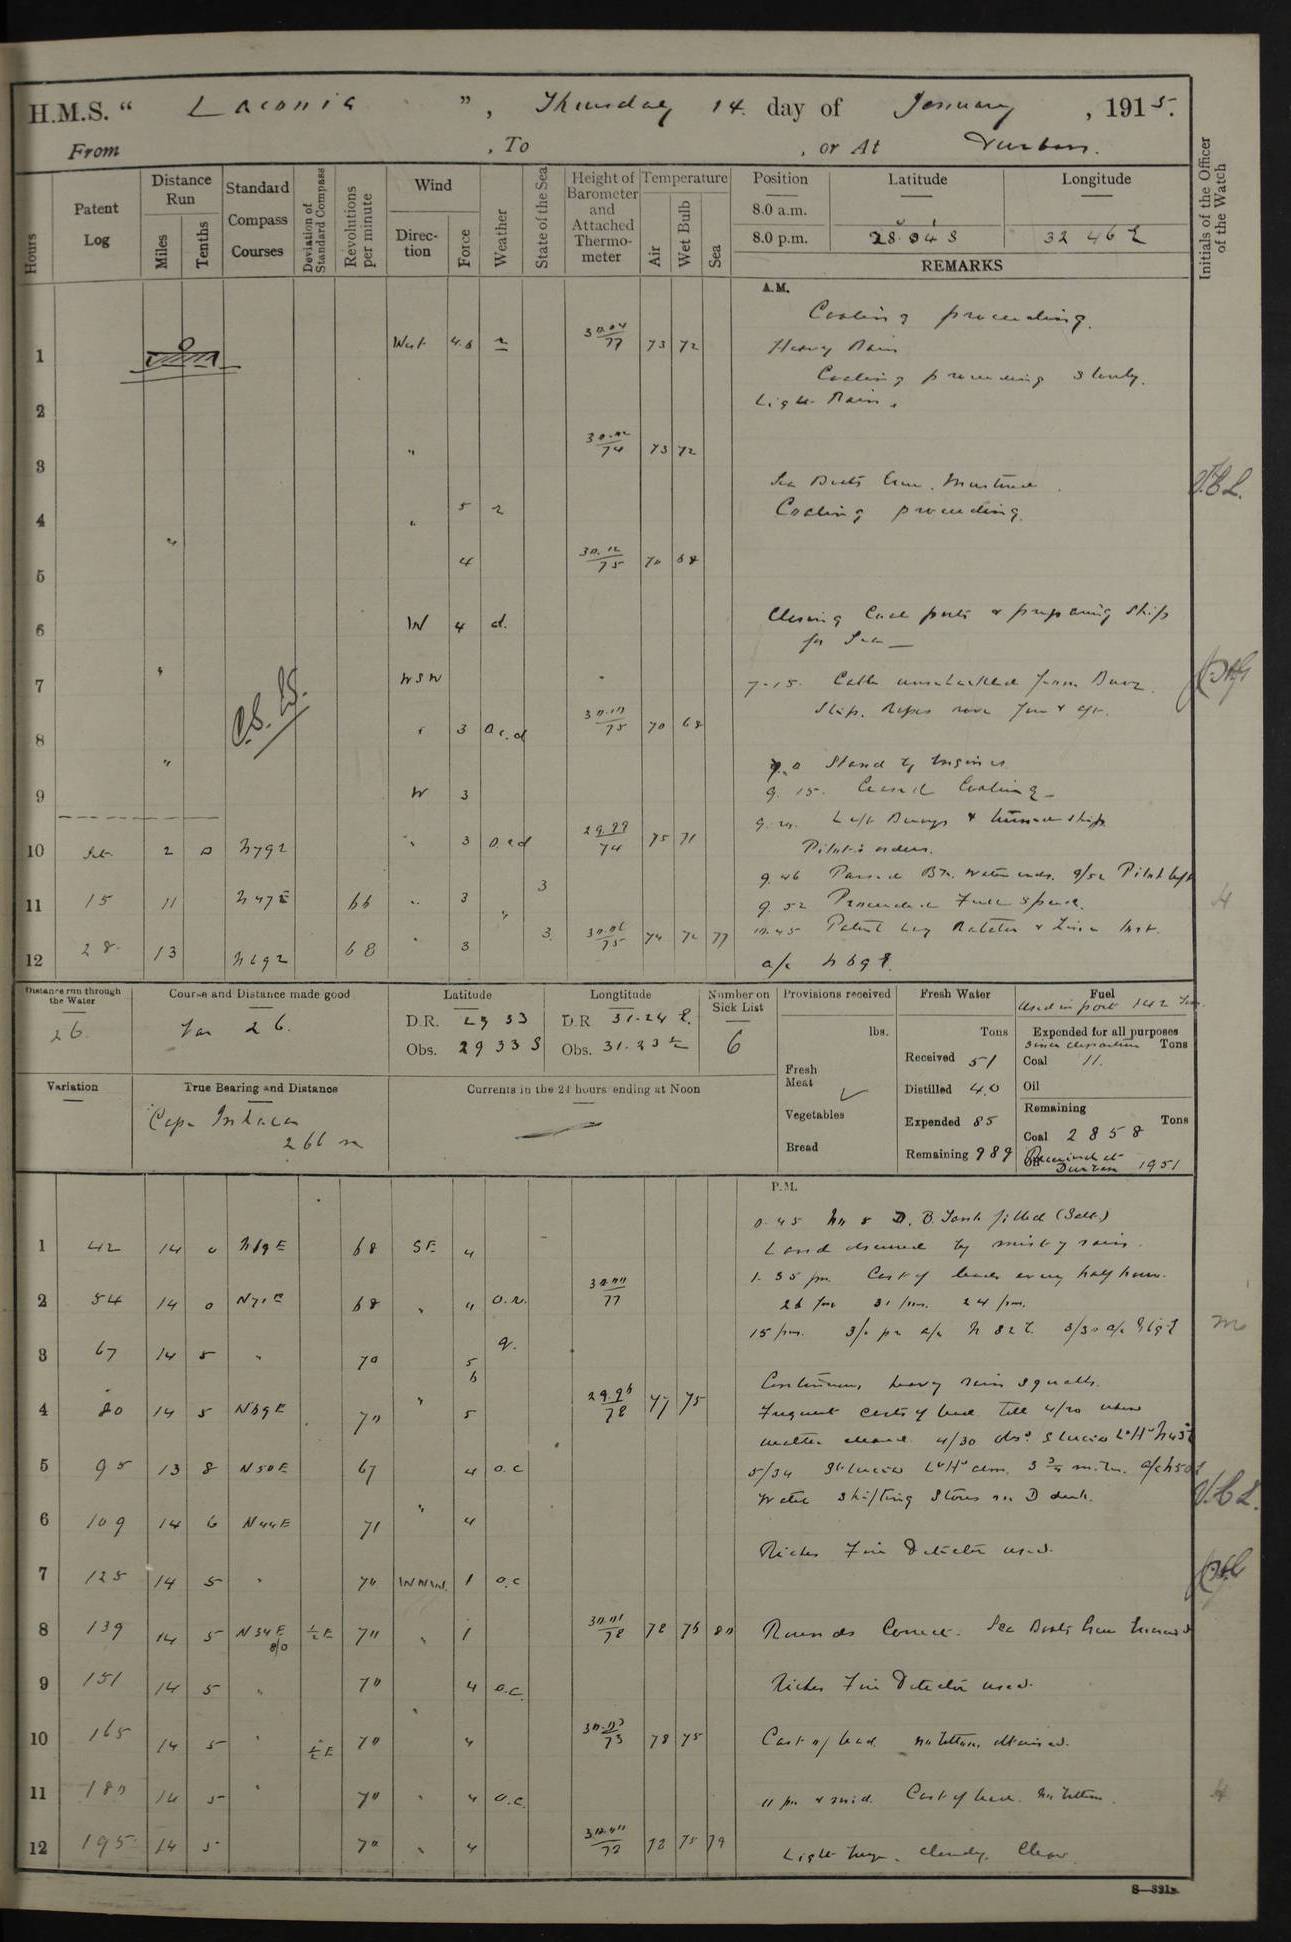 H.M.S. “ Laconia ”, Thursday 14. day of January, 1915.
From , To , or At Durban.
Hours
Patent Log
Distance Run
Miles
Tenths
Standard Compass Courses
Deviation of Standard Compass
Revolutions per minute
Wind
Direction
Force
Weather
State of the Sea
Height of Barometer and Attached Thermometer
Temperature
Air
Wet Bulb
Sea
Position
8.0 a.m.
8.0 p.m.
Latitude
28.34 S
Longitude
32 46 E
REMARKS
Initials of the Officer of the Watch
A.M.
Coaling proceeding.
1 West 4.6 r 30.04/77 73 72 Heavy Rain
Coaling proceeding slowly.
2 Light Rain.
3 " 30.02/74 73 72
Sea Boats Crew Mustered. V.C.L.
4 " 5 r Coaling proceeding.
5 4 30.12/75 70 68
6 W 4 d. Closing Coal ports & preparing Ship
for Sea
7 " WSW 7.15. Cable unshackled from Buoy.
Slip. Ropes rove fore & aft.
8 " 3 o.c.d 30.10/75 70 68
9.0 Stand by Engines
9 " W 3 9.15. Ceased Coaling
Left Buoys & turned ship
10 2 0 N79E " 3 o.c.d 29.99/74 75 71 Pilot's orders.
9.46 Passed Bkwater ends. 9/52 Pilot left
11 15 11 N47E 66 " 3 " 3 9.52 Proceeded Full Speed.
10.45 Patent Log Rotator & Line lost.
12 28 13 N69E 68 " 3 3 30.06/75 74 72 77 a/c N69E.
Distance run through the Water
26.
Course and Distance made good
Var 26.
Latitude
D.R. 29 33
Obs. 29 33 S
Longtitude
D.R. 31.24 E.
Obs. 31.23 E
Number on Sick List
6
Provisions received
lbs.
Fresh Meat
Vegetables
Bread
Fresh Water
Tons
Received 51
Distilled 40
Expended 85
Remaining 989
Fuel
Used in port 142 Tons
Expended for all purposes
since departure Tons
Coal 11.
Oil
Remaining
Tons
Coal 2858
Oil
Received at Durban 1951
Variation
True Bearing and Distance
Cape Inhaca
266 m
Currents in the 24 hours ending at Noon
P.M.
0.45 No 8 D.B. Tank filled (Salt)
1 42 14 0 N69E 68 SE 4 Land obscured by misty rain.
1.35 pm Cast of lead every half hour.
2 54 14 0 N71E 68 " " o.r. 30.00/77 26 fms 31 fms. 24 fms.
15 fms. a/c N 82 E. 3/30 a/c N69E
3 67 14 5 " 70 5 q.
6 Continuous heavy rain squalls.
4 80 14 5 N69E 70 " 5 29.96/78 77 75 Frequent casts of lead till 4/20 when
weather cleared. 4/30 obs. St Lucia Lt Ho N43E
5 95 13 8 N50E 67 4 o.c 5/34 St Lucia Lt Ho abm. 3 3/4 m. a/c N50E
Watch shifting Stores on D deck. V.C.L.
6 109 14 6 N44E 71 " 4
Riches Fire Detector used.
7 125 14 5 " 70 WNW. 1 o.c
8 139 14 5 N34E 8/0 1/2 E 70 " 1 30.01/78 78 76 80 Rounds Correct. Sea Boats Crew Mustered
9 151 14 5 " 70 4 o.c. Riches Fire Detector used.
10 165 14 5 " 1/2 E 70 " 4 30.03/73 78 75 Cast of lead. no bottom obtained.
11 180 14 5 " 70 " 4 o.c. 11 pm & mid. Cast of lead. No bottom.
12 195 14 5 70 " 4 78 75 79 Light haze. cloudy. Clear
S—321B.